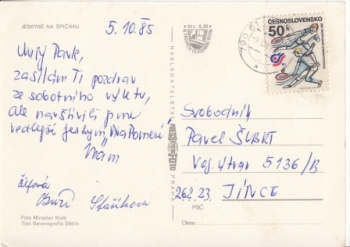 JESKYNĚ NA ŠPIČÁKU
5.10.85
ČESKOSLOVENSKO
50
Milý Pavle,
zasílám Ti pozdrav
ze sobotního výletu,
Ale navštívili jsme
vedlejší jeskyni „Na Pomezí"
NAKLADATELSTVÍ
PRAHA
Svobodník
Pavel ŠUBRT
Voj. útvar 5136/B
262 23 JÍNCE
PSČ
Okres
Foto Miroslav
Tisk Severografia Děčín